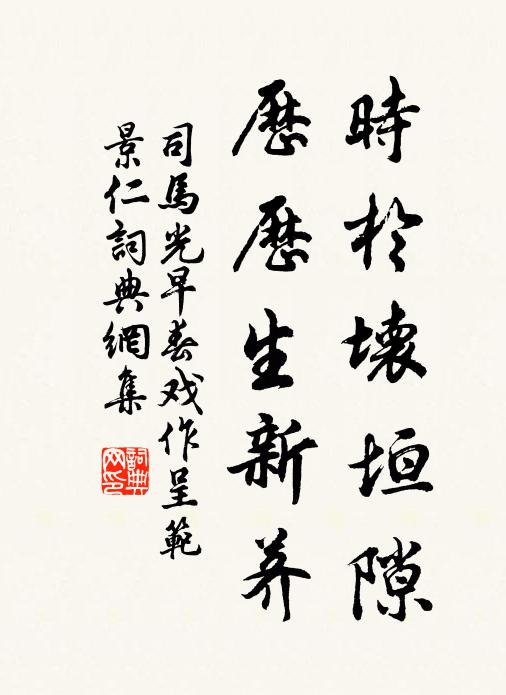 時於壞垣隙
歷歷生新荞
司馬光早春戏作呈範
景仁詞典網集
詞典网印